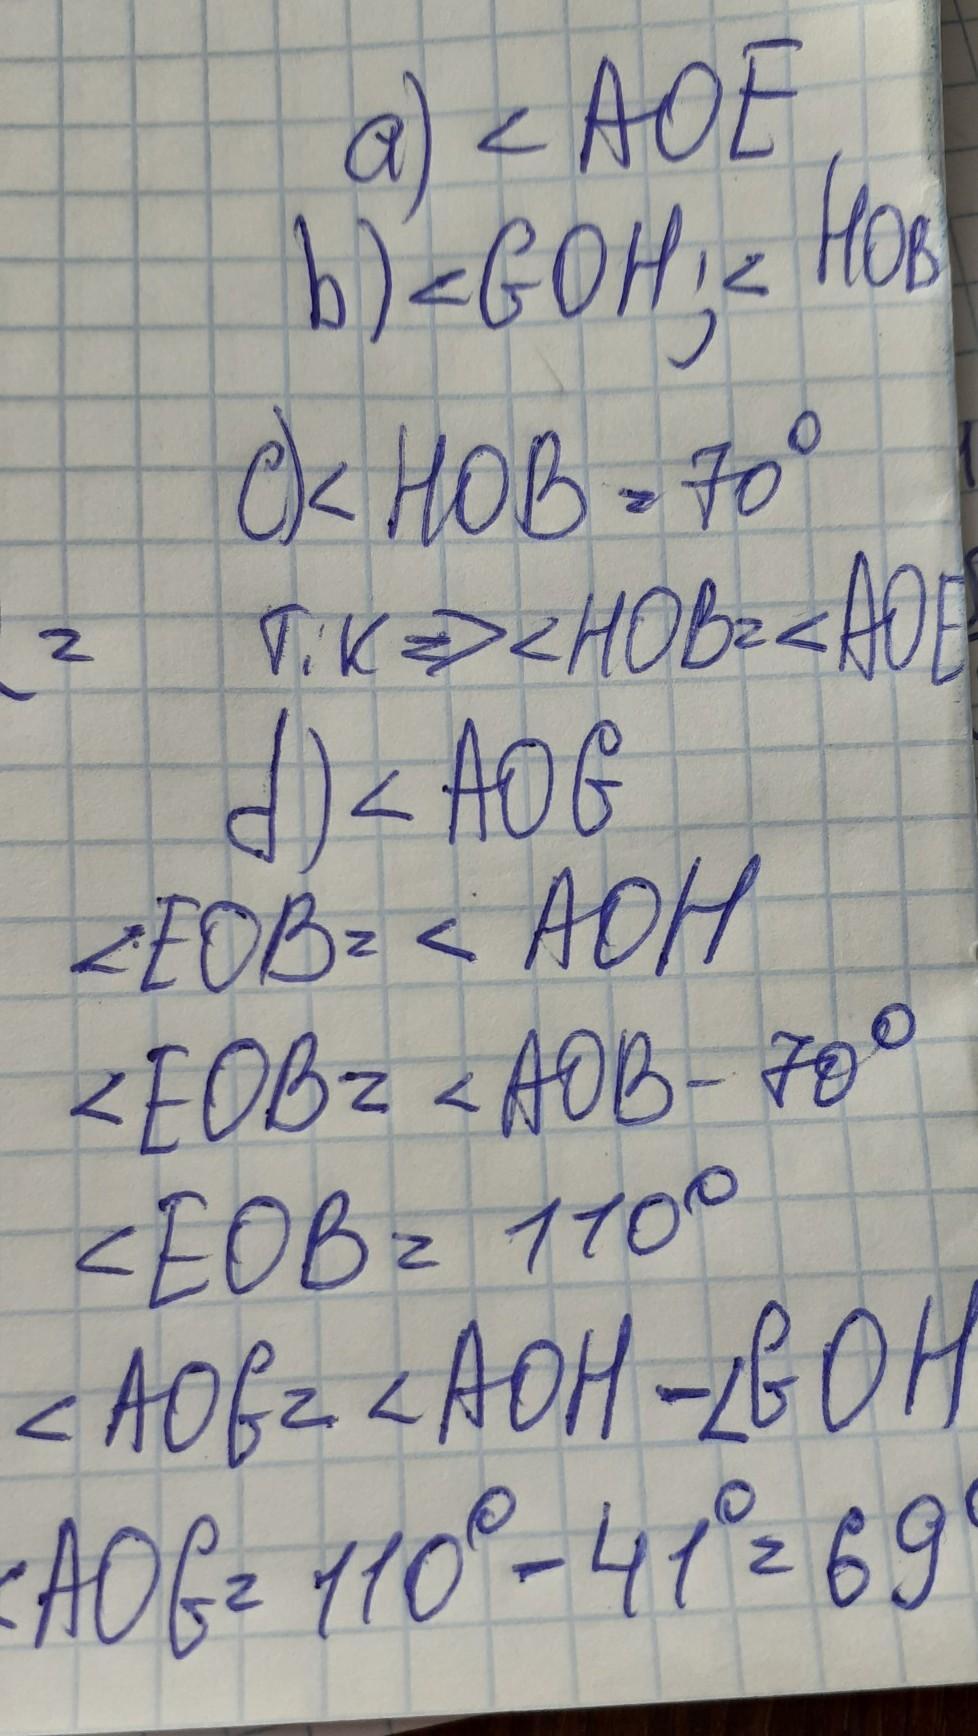 a) < AOE
b) < GOH; < HOB
c) < HOB = 70°
= т.к => < HOB = < AOE
d) < AOG
< EOB = < AOH
< EOB = < AOB - 70°
< EOB = 110°
< AOG = < AOH - < GOH
< AOG = 110° - 41° = 69°